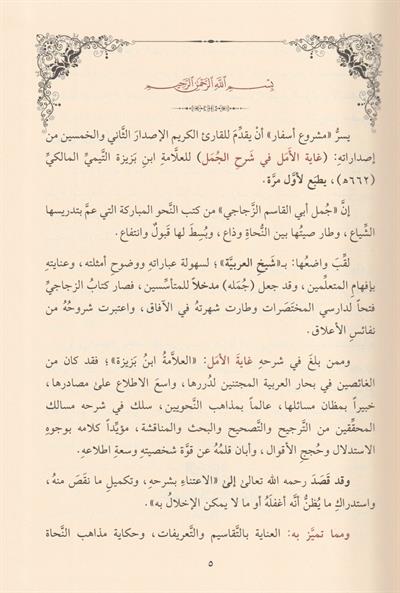 بِسْمِ اللَّهِ الرَّحْمَٰنِ الرَّحِيمِ
يسرُّ «مشروع أسفار» أنْ يقدِّمَ للقارئ الكريم الإصدارَ الثَّاني والخمسين من
إصداراتِهِ: (غاية الأمَل في شَرحِ الجُمَل) للعلَّامةِ ابنِ بَزيزة التَّيْمي المالكيِّ
(٦٦٢هـ)، يطبَع لأوَّل مرَّة.
إنَّ «جُمل أبي القاسم الزَّجاجي» من كتب النَّحو المباركة التي عمَّ بتدريسها
الشِّياع، وطار صيتُها بين النُّحاة وذاع، وبُسِطَ لها قبولٌ وانتفاع.
لقِّبَ واضعُها: بـ«شَيخ العربيَّة»؛ لسهولة عباراته ووضوح أمثلته، وعنايتهِ
بإفهام المتعلِّمين، وقد جعل (جُمَله) مدخلاً للمتأسِّسين، فصار كتابُ الزجاجي
فتحاً لدارسي المختَصَرات وطارت شهرتهُ في الآفاق، واعتبرت شروحُهُ من
نفائسِ الأعلاق.
وممن بلغَ في شرحهِ غايةَ الأمَل: «العلامَةُ ابنُ بَزيزة»؛ فقد كان من
الغائصين في بحار العربية المجتنين لدُررها، واسعَ الاطلاع علىٰ مصادرها،
خبيراً بمظان مسائلها، عالماً بمذاهب النَّحويين، سلك في شرحه مسالك
المحقِّقين من التَّرجيح والتَّصحيح والبحث والمناقشة، مؤيِّداً كلامه بوجوهِ
الاستدلال وحُججِ الأقوال، وأبان قلمُهُ عن قوَّة شخصيته وسعةِ اطلاعهِ.
وقد قَصَدَ رحمه الله تعالىٰ إلىٰ «الاعتناءِ بشرحِهِ، وتكميلِ ما نقَصَ منهُ،
واستدراكِ ما يُظنُّ أنَّه أغفلَهُ أو ما لا يمكن الإخلالُ به».
ومما تميَّز به: العناية بالتَّقاسيم والتَّعريفات، وحكاية مذاهب النَّحاة
٥